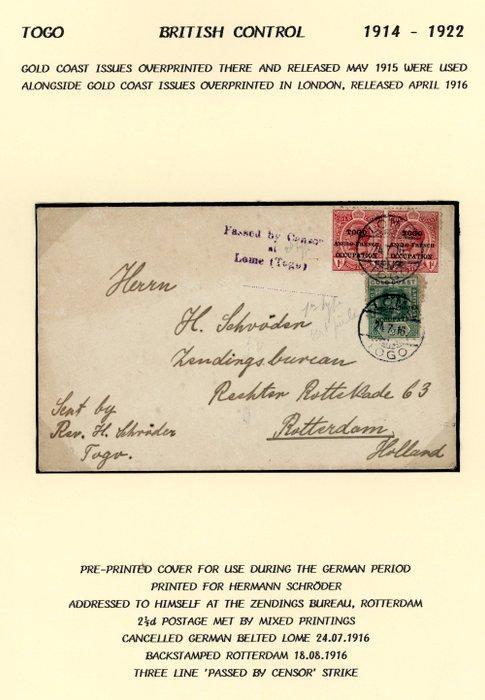 TOGO BRITISH CONTROL 1914 - 1922
GOLD COAST ISSUES OVERPRINTED THERE AND RELEASED MAY 1915 WERE USED
ALONGSIDE GOLD COAST ISSUES OVERPRINTED IN LONDON, RELEASED APRIL 1916
Passed by Censor
at
Lome (Togo)
TOGO TOGO
ANGLO-FRENCH ANGLO-FRENCH
OCCUPATION OCCUPATION
GOLD COAST
LOME
24.7.16
TOGO
Herrn
H. Schröder
Zendingsbureau
Rechter Rottekade 63
Rotterdam
Holland
Sent by
Rev. H. Schröder
Togo.
PRE-PRINTED COVER FOR USE DURING THE GERMAN PERIOD
PRINTED FOR HERMANN SCHRÖDER
ADDRESSED TO HIMSELF AT THE ZENDINGS BUREAU, ROTTERDAM
2½d POSTAGE MET BY MIXED PRINTINGS
CANCELLED GERMAN BELTED LOME 24.07.1916
BACKSTAMPED ROTTERDAM 18.08.1916
THREE LINE 'PASSED BY CENSOR' STRIKE